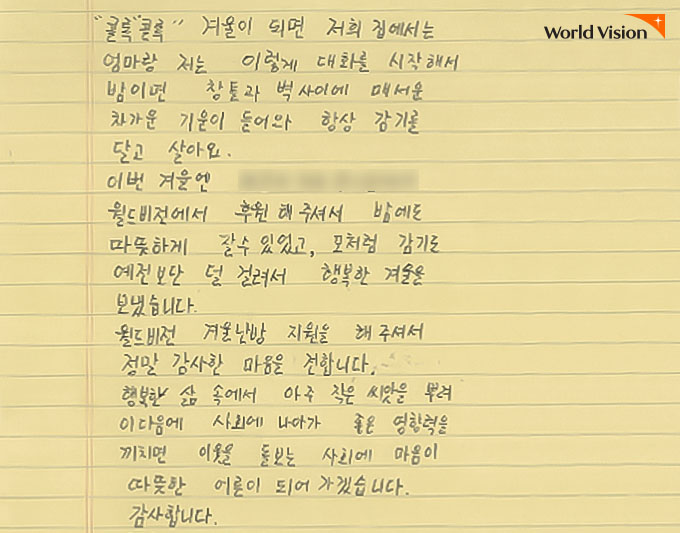 World Vision
"콜록" 콜록" 겨울이 되면 저희 집에서는
엄마랑 저는 이렇게 대화를 시작해서
밤이면 창틀과 벽사이에 매서운
차가운 기운이 들어와 항상 감기를
달고 살아요.
이번 겨울엔
월드비전에서 후원 해 주셔서 밤에도
따뜻하게 잘수 있었고, 모처럼 감기도
예전보단 덜 걸려서 행복한 겨울을
보냈습니다.
월드비전 겨울난방 지원을 해 주셔서
정말 감사한 마음을 전합니다.
행복한 삶 속에서 아주 작은 씨앗을 뿌려
이다음에 사회에 나아가 좋은 영향력을
끼치면 이웃을 돌보는 사회에 마음이
따뜻한 어른이 되어 가겠습니다.
감사합니다.